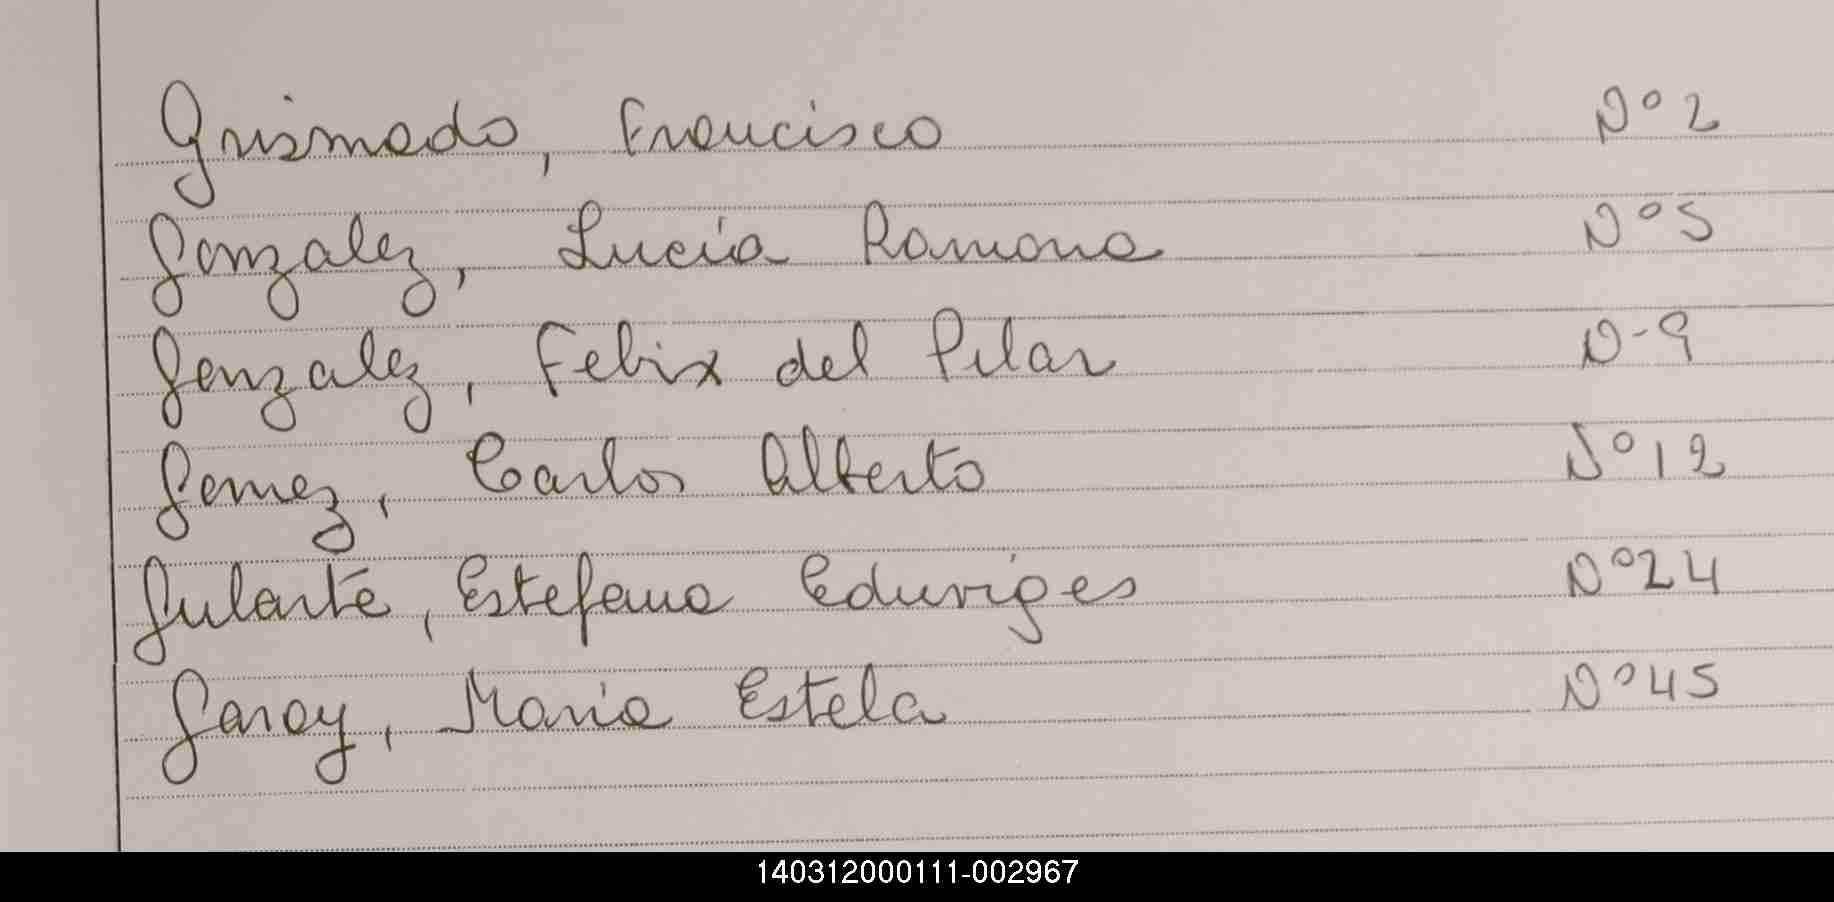 Grismado, Francisco N° 2
Gonzalez, Lucía Ramona N° 5
Gonzalez, Felix del Pilar N- 9
Gomez, Carlos Alberto N° 12
Gularte, Estefana Eduviges N° 24
Garay, Maria Estela N° 45
140312000111-002967